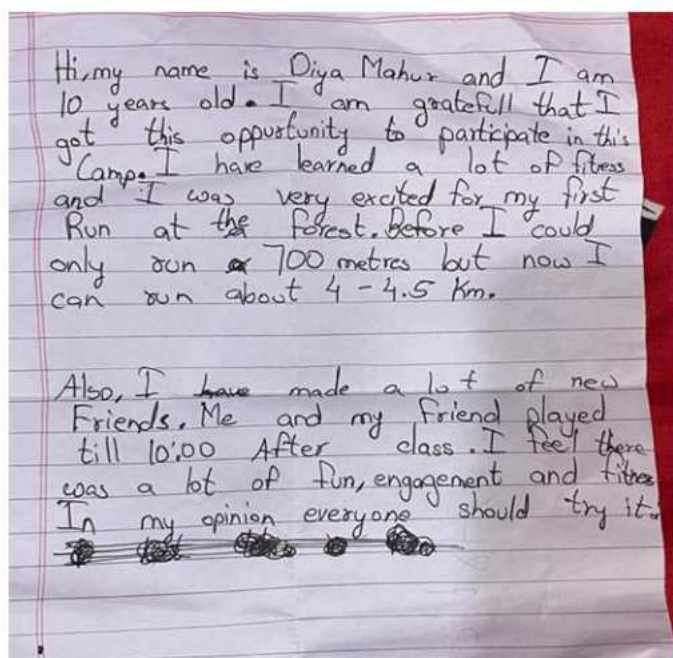 Hi, my name is Diya Mahur and I am
10 years old. I am gratefull that I
got this oppurtunity to participate in this
Camp. I have learned a lot of fitness
and I was very excited for my first
Run at the forest. Before I could
only run 700 metres but now I
can run about 4 - 4.5 Km.
Also, I have made a lot of new
Friends. Me and my friend played
till 10:00 After class. I feel there
was a lot of fun, engagement and fitness
In my opinion everyone should try it.